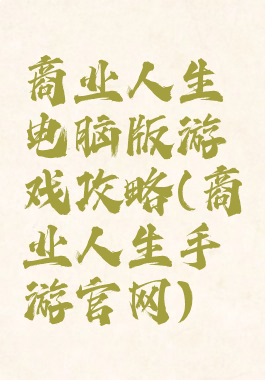 商业人生
电脑版游
戏攻略(商
业人生手
游官网)